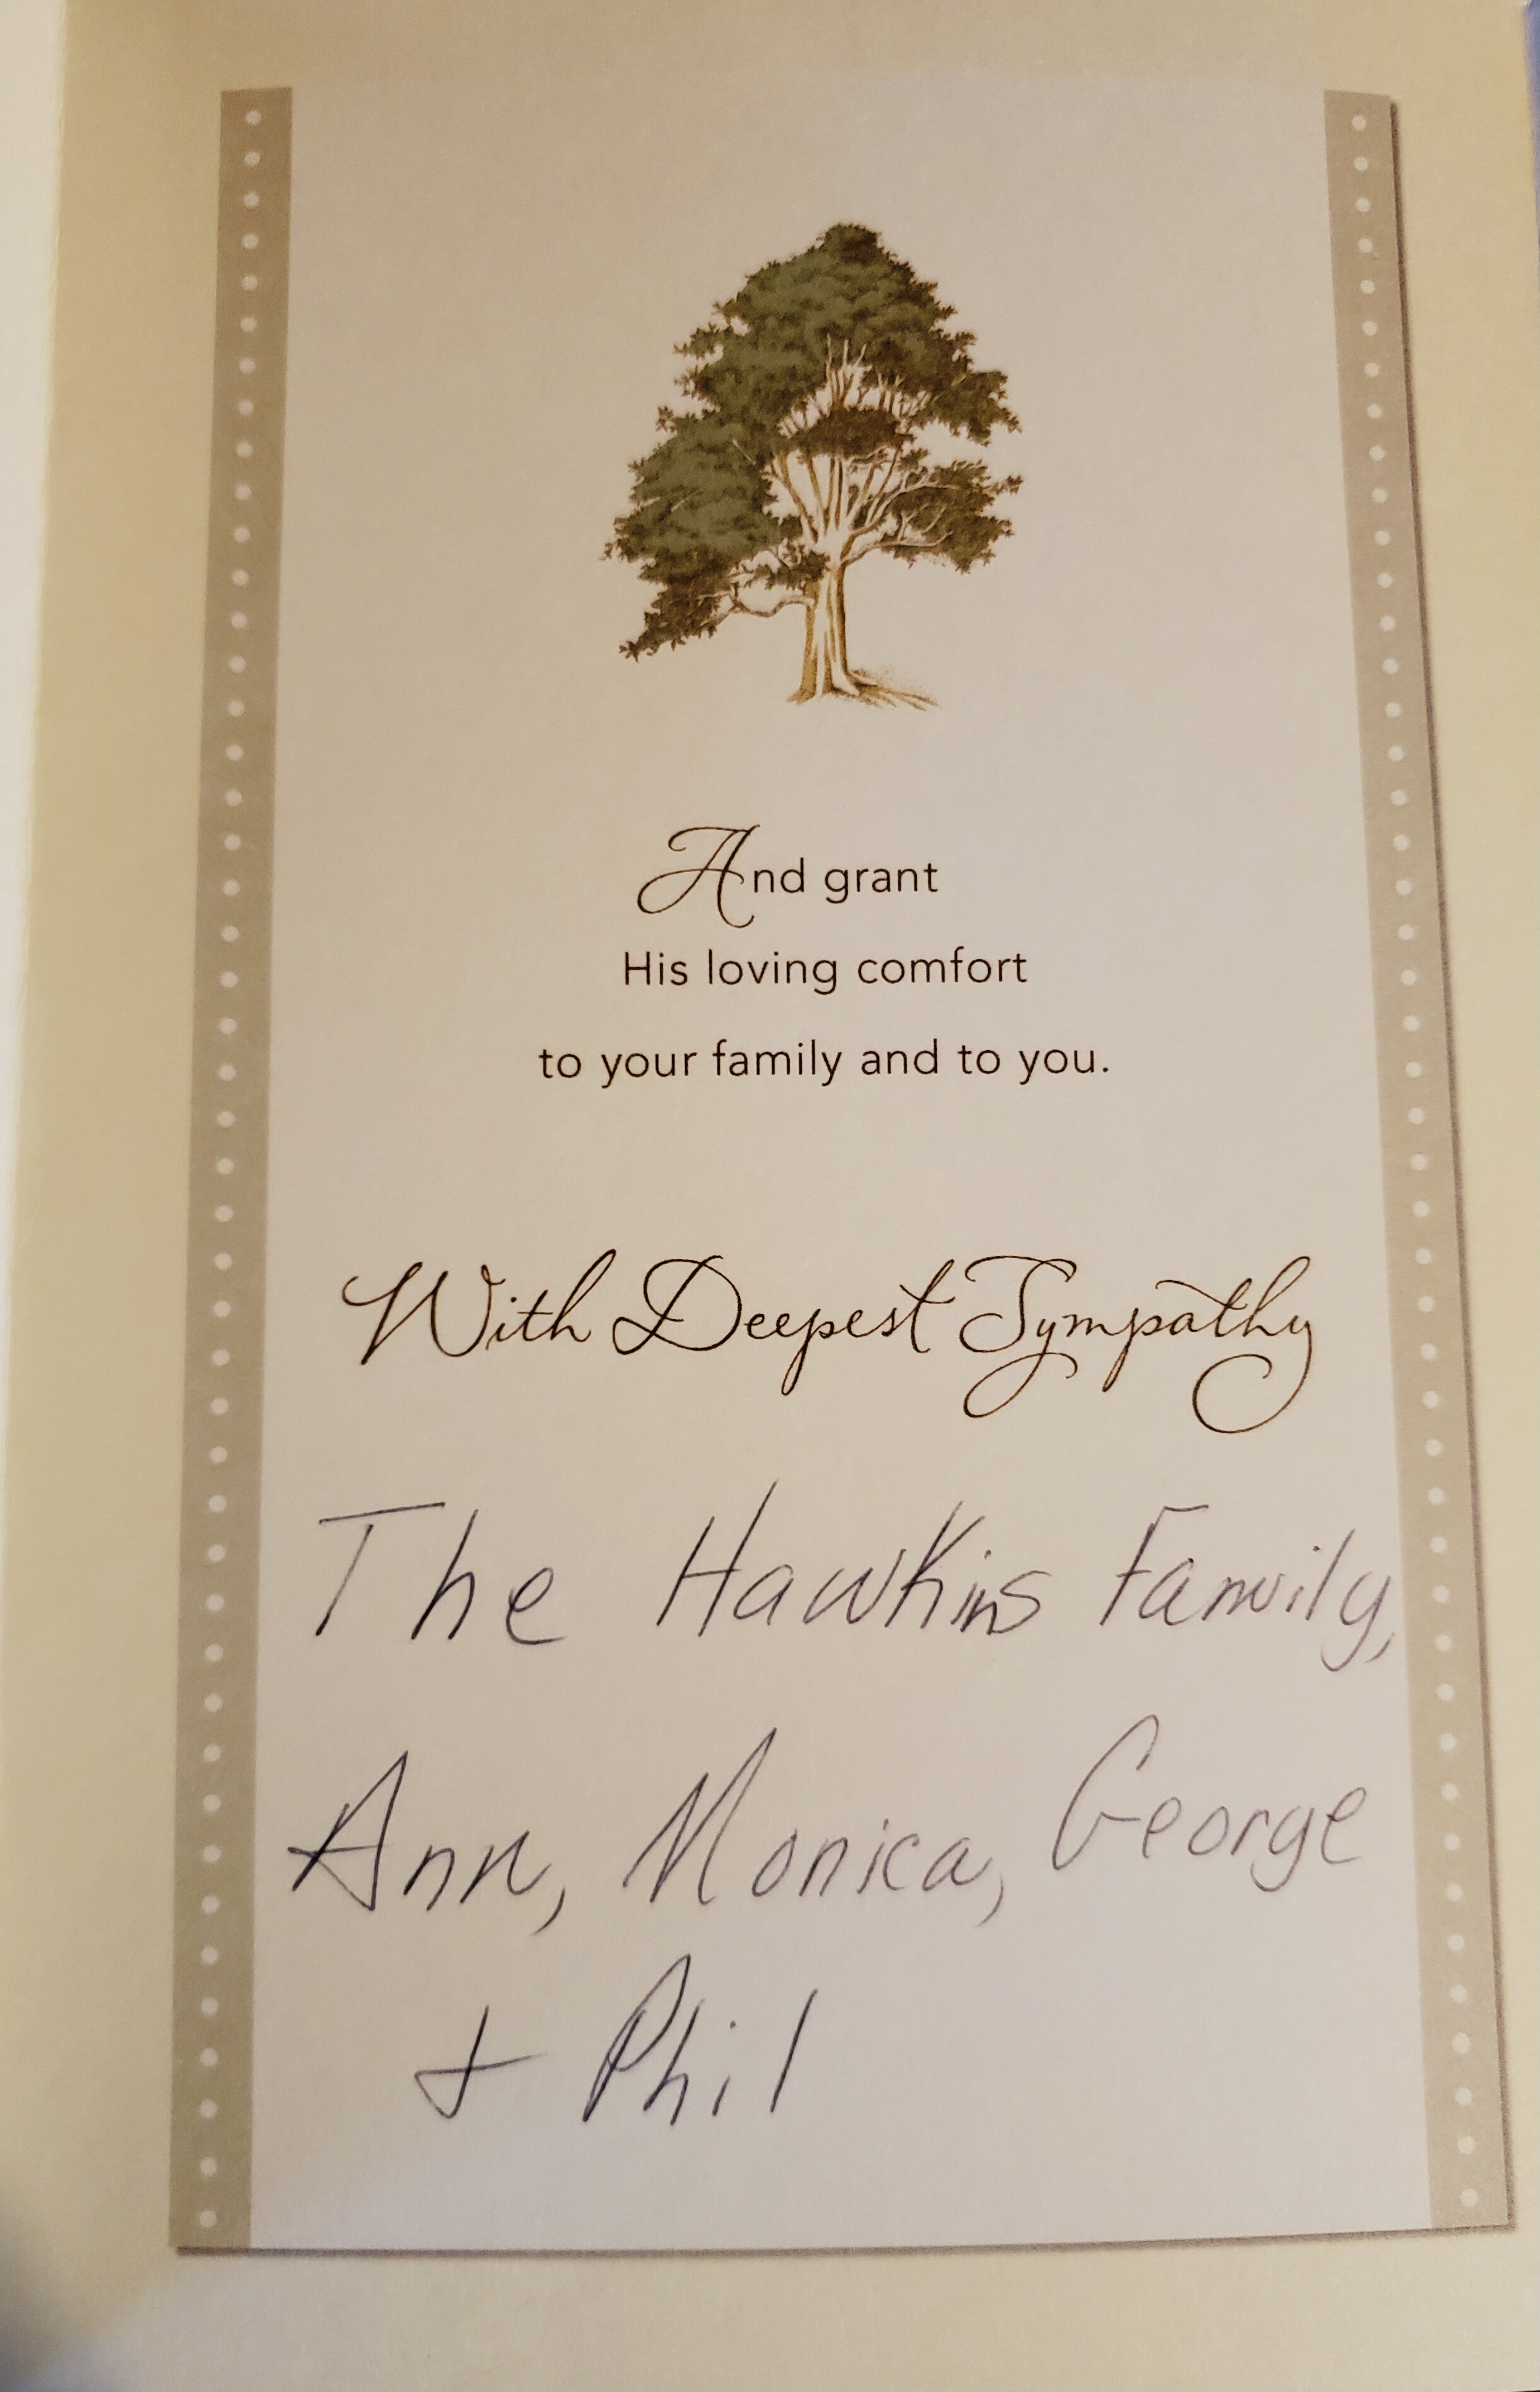 And grant
His loving comfort
to your family and to you.
With Deepest Sympathy
The Hawkins Family,
Ann, Monica, George
+ Phil